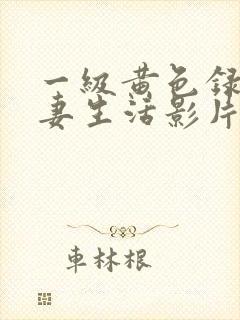 一级黄色録
妻生活影片
車林根